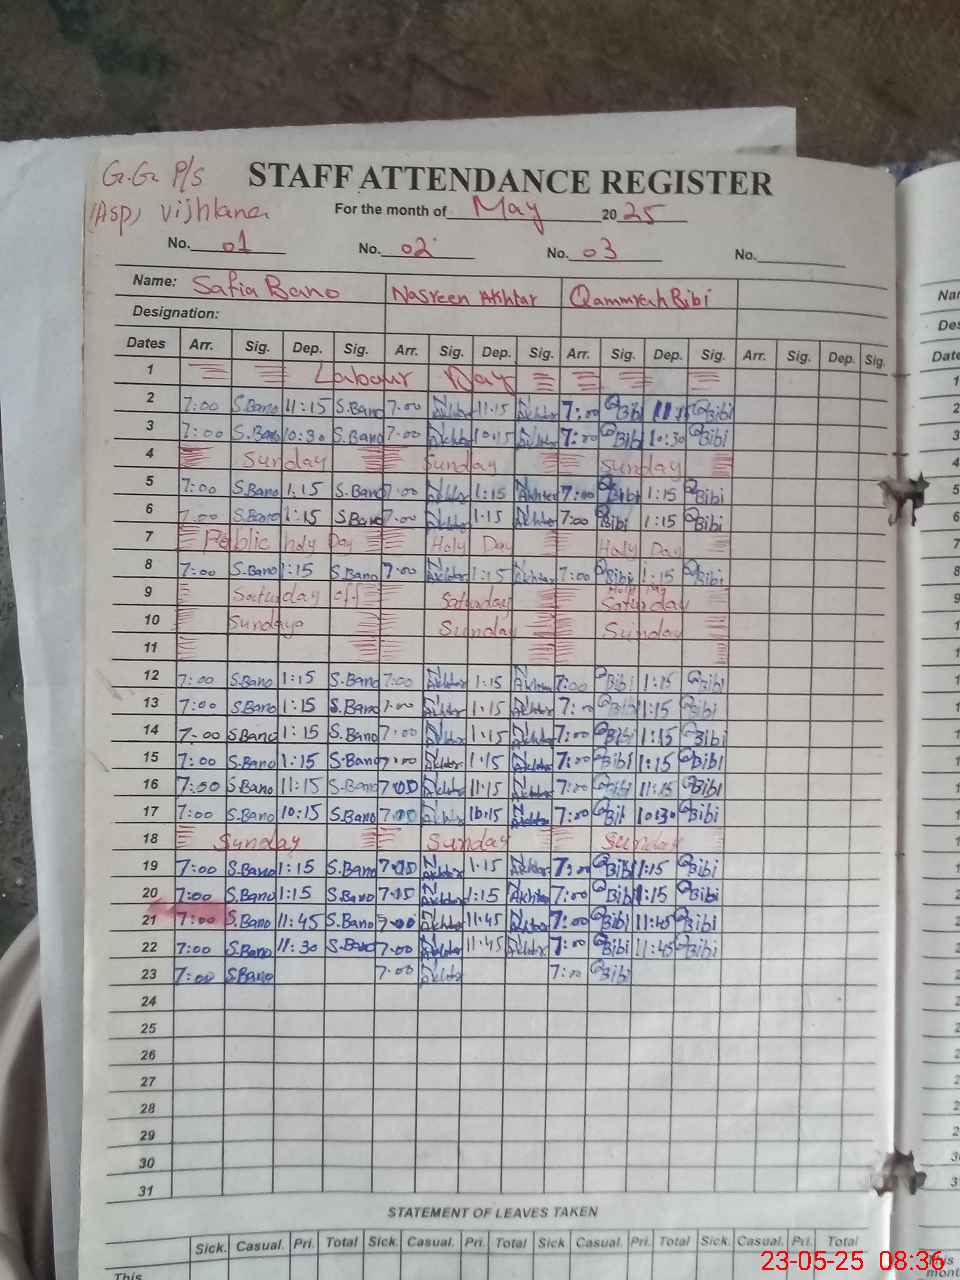 G.G P/S
STAFF ATTENDANCE REGISTER
(Asp) vijhlana
For the month of May 2025
No. 01 No. 02 No. 03 No.
Name: Safia Bano Nasreen Akhtar Qammrah Bibi
Designation:
Dates Arr. Sig. Dep. Sig. Arr. Sig. Dep. Sig. Arr. Sig. Dep. Sig. Arr. Sig. Dep. Sig.
1 Labour Day
2 7:00 S.Bano 11:15 S.Bano 7:00 N Akhtar 11:15 N Akhtar 7:00 Q Bibi 11:15 Q Bibi
3 7:00 S.Bano 10:30 S.Bano 7:00 N Akhtar 10:15 N Akhtar 7:00 Q Bibi 10:30 Q Bibi
4 Sunday Sunday Sunday
5 7:00 S.Bano 1:15 S.Bano 7:00 N Akhtar 1:15 N Akhtar 7:00 Q Bibi 1:15 Q Bibi
6 7:00 S.Bano 1:15 S.Bano 7:00 N Akhtar 1:15 N Akhtar 7:00 Q Bibi 1:15 Q Bibi
7 Public holy Day Holy Day Holy Day
8 7:00 S.Bano 1:15 S.Bano 7:00 N Akhtar 1:15 N Akhtar 7:00 Q Bibi 1:15 Q Bibi
9 Saturday off Saturday Holy Day Saturday
10 Sunday Sunday Sunday
11
12 7:00 S.Bano 1:15 S.Bano 7:00 N Akhtar 1:15 N Akhtar 7:00 Q Bibi 1:15 Q Bibi
13 7:00 S.Bano 1:15 S.Bano 7:00 N Akhtar 1:15 N Akhtar 7:00 Q Bibi 1:15 Q Bibi
14 7:00 S.Bano 1:15 S.Bano 7:00 N Akhtar 1:15 N Akhtar 7:00 Q Bibi 1:15 Q Bibi
15 7:00 S.Bano 1:15 S.Bano 7:00 N Akhtar 1:15 N Akhtar 7:00 Q Bibi 1:15 Q Bibi
16 7:00 S.Bano 11:15 S.Bano 7:00 N Akhtar 11:15 N Akhtar 7:00 Q Bibi 11:15 Q Bibi
17 7:00 S.Bano 10:15 S.Bano 7:00 N Akhtar 10:15 N Akhtar 7:00 Q Bibi 10:30 Q Bibi
18 Sunday Sunday Sunday
19 7:00 S.Bano 1:15 S.Bano N Akhtar 1:15 N Akhtar 7:00 Q Bibi 1:15 Q Bibi
20 7:00 S.Bano 1:15 S.Bano N Akhtar 1:15 N Akhtar 7:00 Q Bibi 1:15 Q Bibi
21 7:00 S.Bano 11:45 S.Bano 7:00 N Akhtar 11:45 N Akhtar 7:00 Q Bibi 11:45 Q Bibi
22 7:00 S.Bano 11:30 S.Bano 7:00 N Akhtar 11:45 N Akhtar 7:00 Q Bibi 11:45 Q Bibi
23 7:00 S.Bano 7:00 N Akhtar 7:00 Q Bibi
24
25
26
27
28
29
30
31
STATEMENT OF LEAVES TAKEN
Sick. Casual. Pri. Total Sick. Casual. Pri. Total Sick Casual. Pri. Total Sick. Casual. Pri. Total
This
23-05-25 08:36